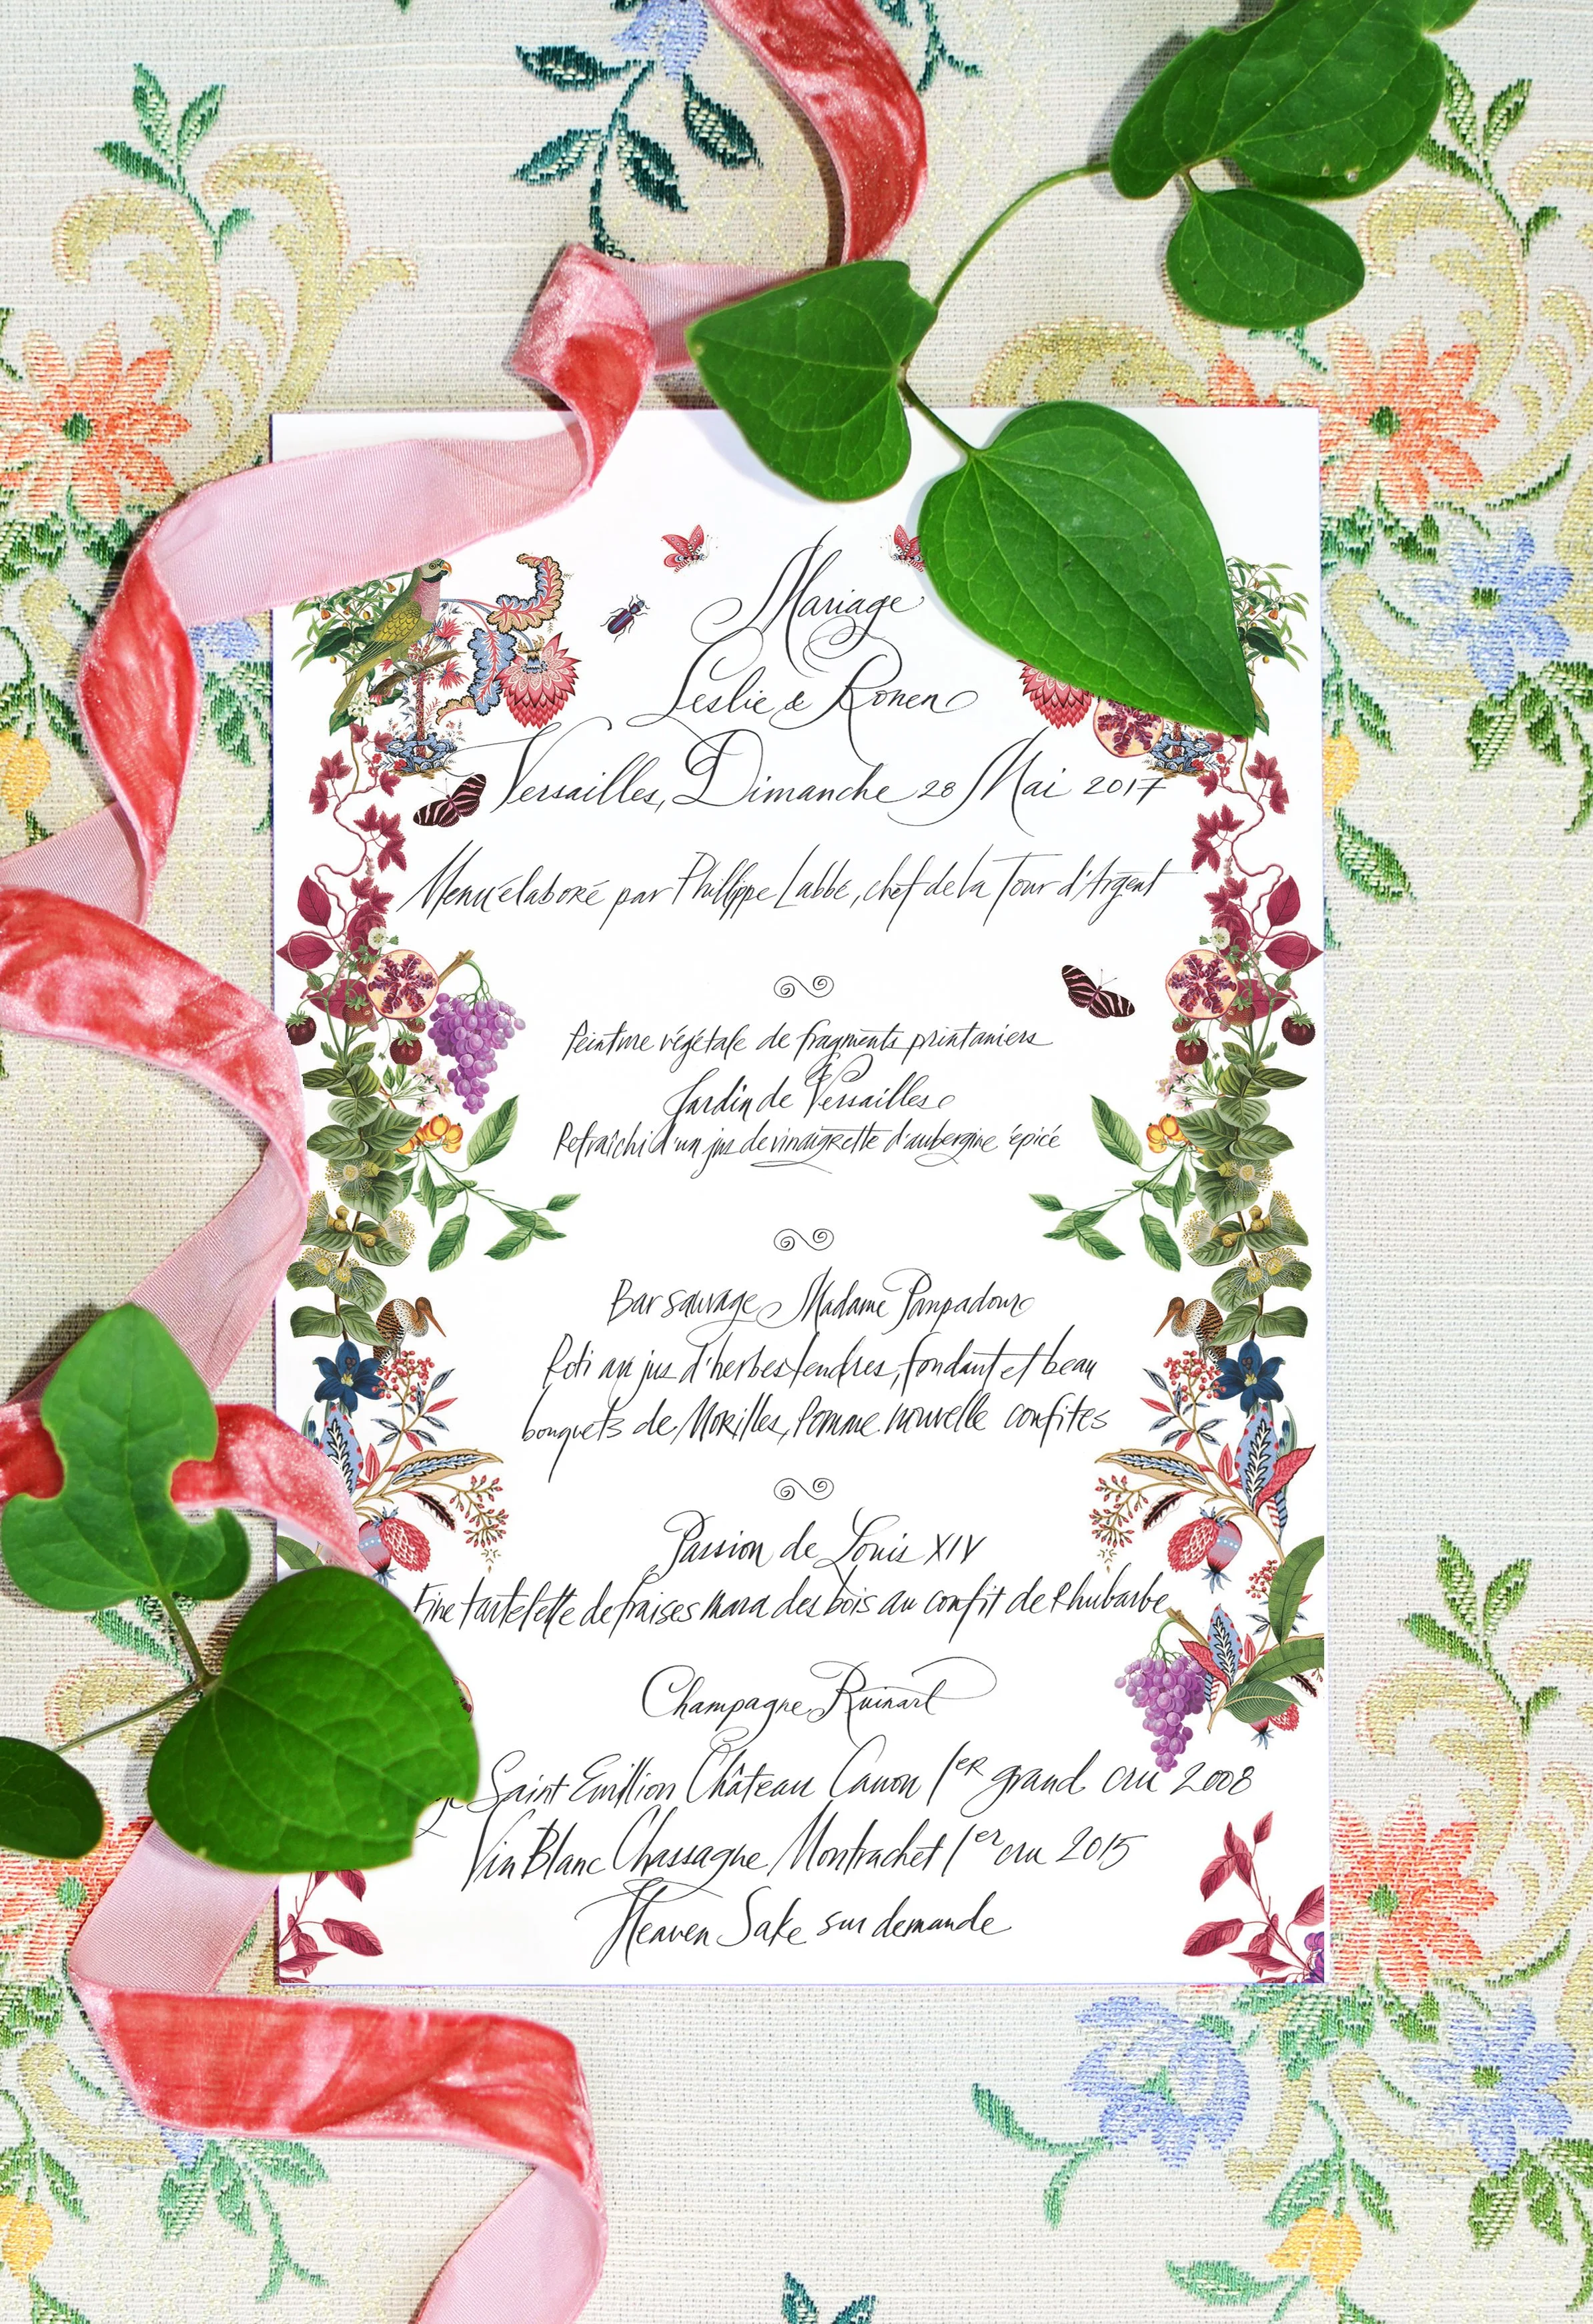 Mariage
Leslie & Ronen
Versailles, Dimanche 28 Mai 2017
Menu élaboré par Philippe Labbé, chef de la Tour d'Argent
Peinture végétale de fragments printaniers
Jardin de Versailles
Rafraîchi d'un jus de vinaigrette d'aubergine épicé
Bar sauvage Madame Panpadour
Roti au jus d'herbes tendres, fondant et beau
bouquets de Morilles, Pomme nouvelle confites
Passion de Louis XIV
Fine tartelette de fraises mara des bois au confit de Rhubarbe
Champagne Ruinart
Saint Emillion Château Canon 1er grand cru 2008
Vin Blanc Chassagne Montrachet 1er cru 2015
Heaven Sake sur demande